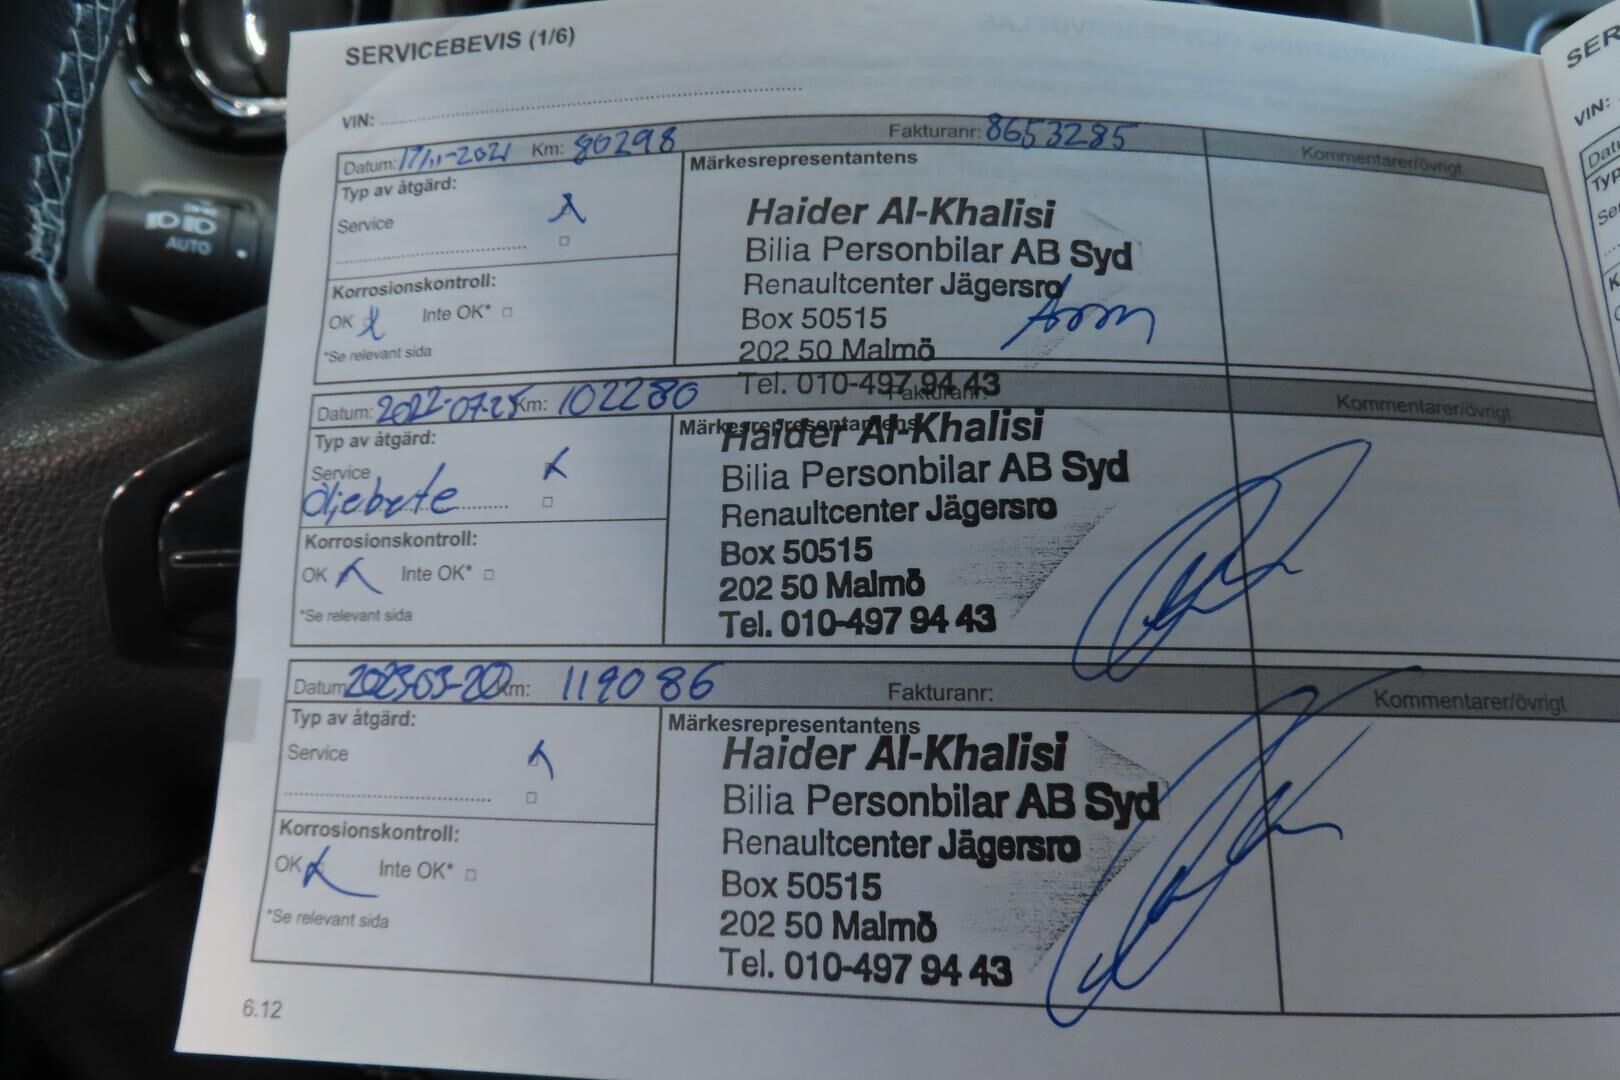 SERVICEBEVIS (1/6)
VIN:
Datum: 17/11-2021 Km: 80298 Fakturanr: 8653285
Kommentarer/övrigt
Typ av åtgärd:
Service
Korrosionskontroll:
OK Inte OK*
*Se relevant sida
Märkesrepresentantens
Haider Al-Khalisi
Bilia Personbilar AB Syd
Renaultcenter Jägersro
Box 50515
202 50 Malmö
Tel. 010-497 94 43
Datum: 2022-07-25 Km: 102280 Fakturanr:
Kommentarer/övrigt
Typ av åtgärd:
Service
Oljebyte
Korrosionskontroll:
OK Inte OK*
*Se relevant sida
Märkesrepresentantens
Haider Al-Khalisi
Bilia Personbilar AB Syd
Renaultcenter Jägersro
Box 50515
202 50 Malmö
Tel. 010-497 94 43
Datum 2023-03-20 Km: 119086 Fakturanr:
Kommentarer/övrigt
Typ av åtgärd:
Service
Korrosionskontroll:
OK Inte OK*
*Se relevant sida
Märkesrepresentantens
Haider Al-Khalisi
Bilia Personbilar AB Syd
Renaultcenter Jägersro
Box 50515
202 50 Malmö
Tel. 010-497 94 43
6.12
SER
VIN:
AUTO